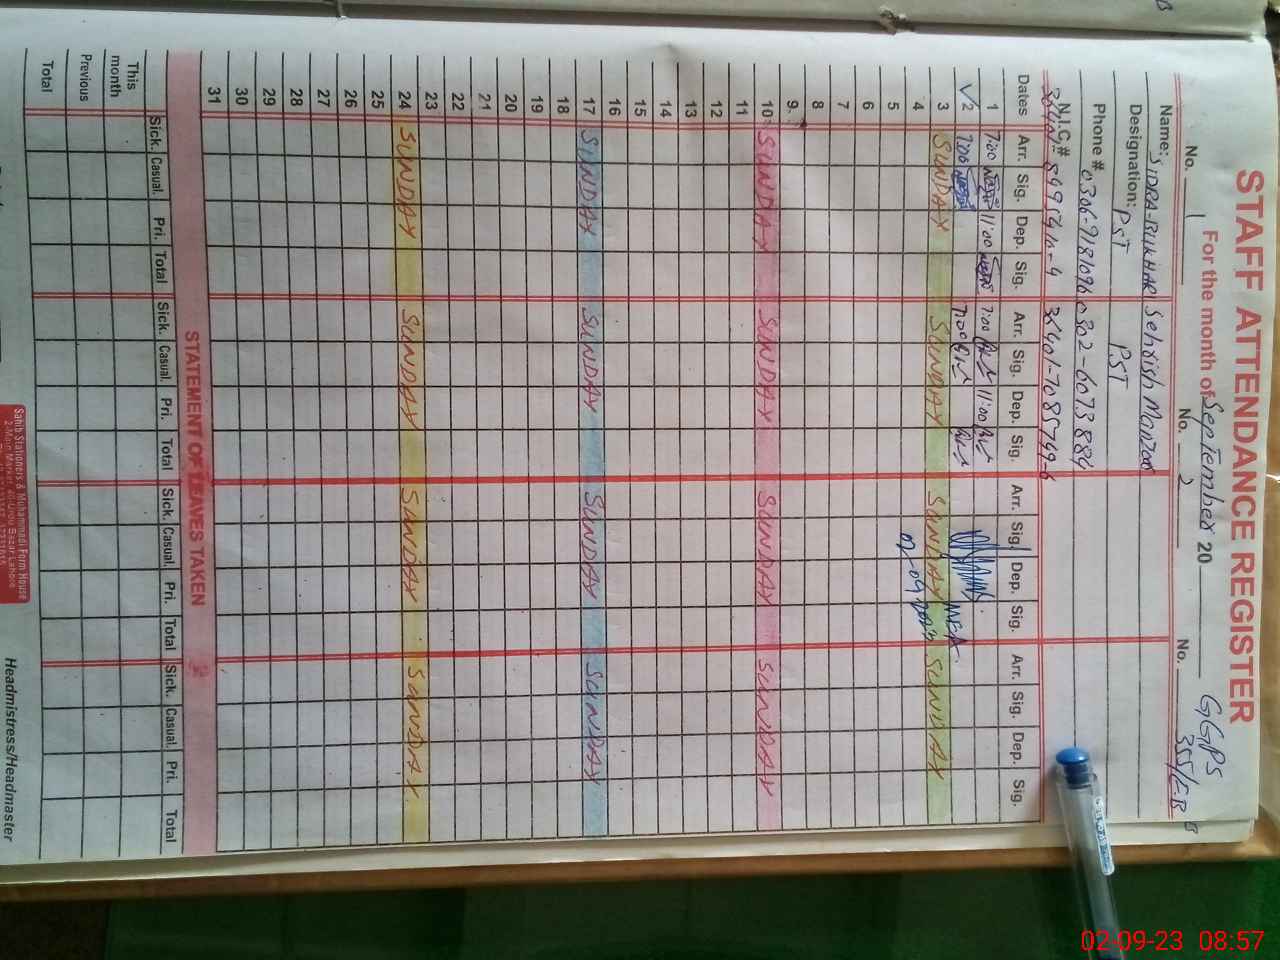 STAFF ATTENDANCE REGISTER
For the month of September 20
GGPS
355/E.B
No. 1 No. 2 No.
Name: SIDRA-BUKHARI Sehrish Manzoor
Designation: PST PST
Phone # 0306-9181096 0302-6073884
N.I.C.#
Dates Arr. Sig. Dep. Sig. Arr. Sig. Dep. Sig. Arr. Sig. Dep. Sig. Arr. Sig. Dep. Sig.
1 7:00 11:00 7:00 11:00
2 7:00 7:00
3 SUNDAY SUNDAY SUNDAY SUNDAY
MEA
4
5
6
7
8
9
10 SUNDAY SUNDAY SUNDAY SUNDAY
11
12
13
14
15
16
17 SUNDAY SUNDAY SUNDAY SUNDAY
18
19
20
21
22
23
24 SUNDAY SUNDAY SUNDAY SUNDAY
25
26
27
28
29
30
31
STATEMENT OF LEAVES TAKEN
Sick. Casual. Pri. Total Sick. Casual. Pri. Total Sick. Casual. Pri. Total Sick. Casual. Pri. Total
This month
Previous
Total
Headmistress/Headmaster
Sahib Stationers & Muhammadi Form House
2-Main Market 40-Urdu Bazar Lahore
02-09-23 08:57